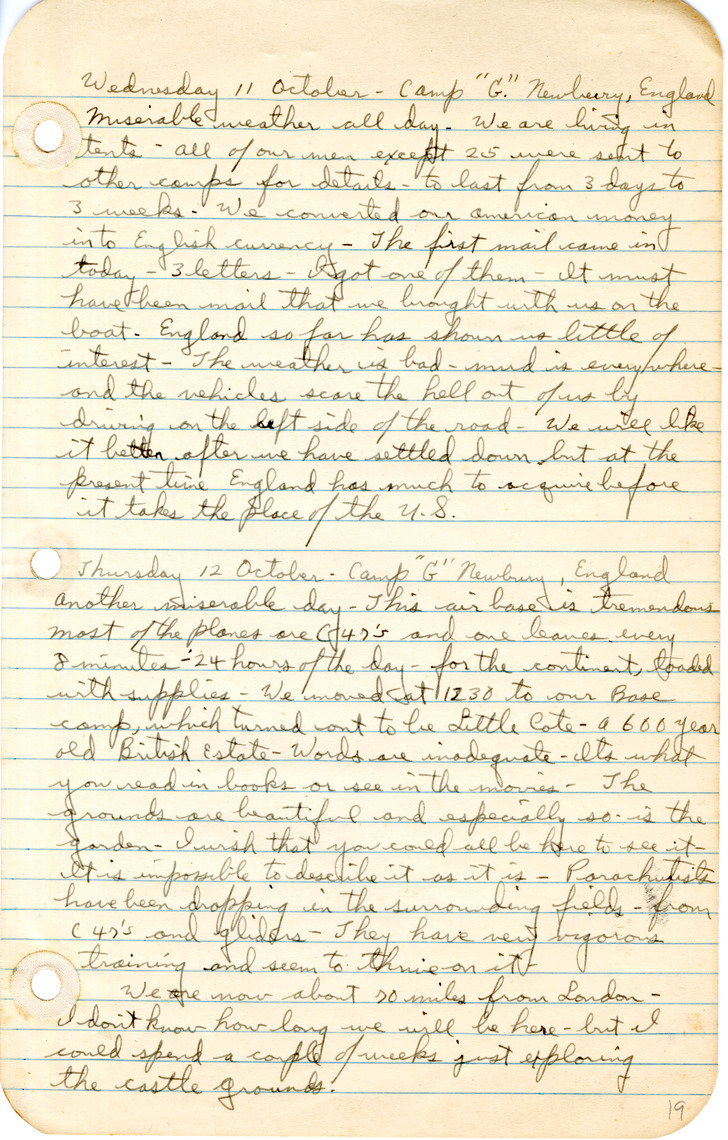 Wednesday 11 October - Camp "G." Newbury, England
Miserable weather all day. We are living in
tents - all of our men except 25 were sent to
other camps for details - to last from 3 days to
3 weeks. We converted our american money
into English currency - The first mail came in
today - 3 letters - I got one of them - It must
have been mail that we brought with us on the
boat. England so far has shown us little of
interest - The weather is bad - mud is everywhere -
and the vehicles scare the hell out of us by
driving on the left side of the road - We will like
it better after we have settled down but at the
present time England has much to acquire before
it takes the place of the U.S.
Thursday 12 October - Camp "G" Newbury, England
another miserable day - This air base is tremendous
most of the planes are C-47's and one leaves every
8 minutes - 24 hours of the day - for the continent, loaded
with supplies - We moved at 1230 to our Base
camp, which turned out to be Little Cote - a 600 year
old British Estate - Words are inadequate - its what
you read in books or see in the movies - The
grounds are beautiful and especially so is the
garden - I wish that you could all be here to see it -
It is impossible to describe it as it is - Parachutists
have been dropping in the surrounding fields - from
C 47's and gliders - They have very vigorous
training and seem to thrive on it -
We are now about 70 miles from London -
I don't know how long we will be here - but I
could spend a couple of weeks just exploring
the castle grounds.
19